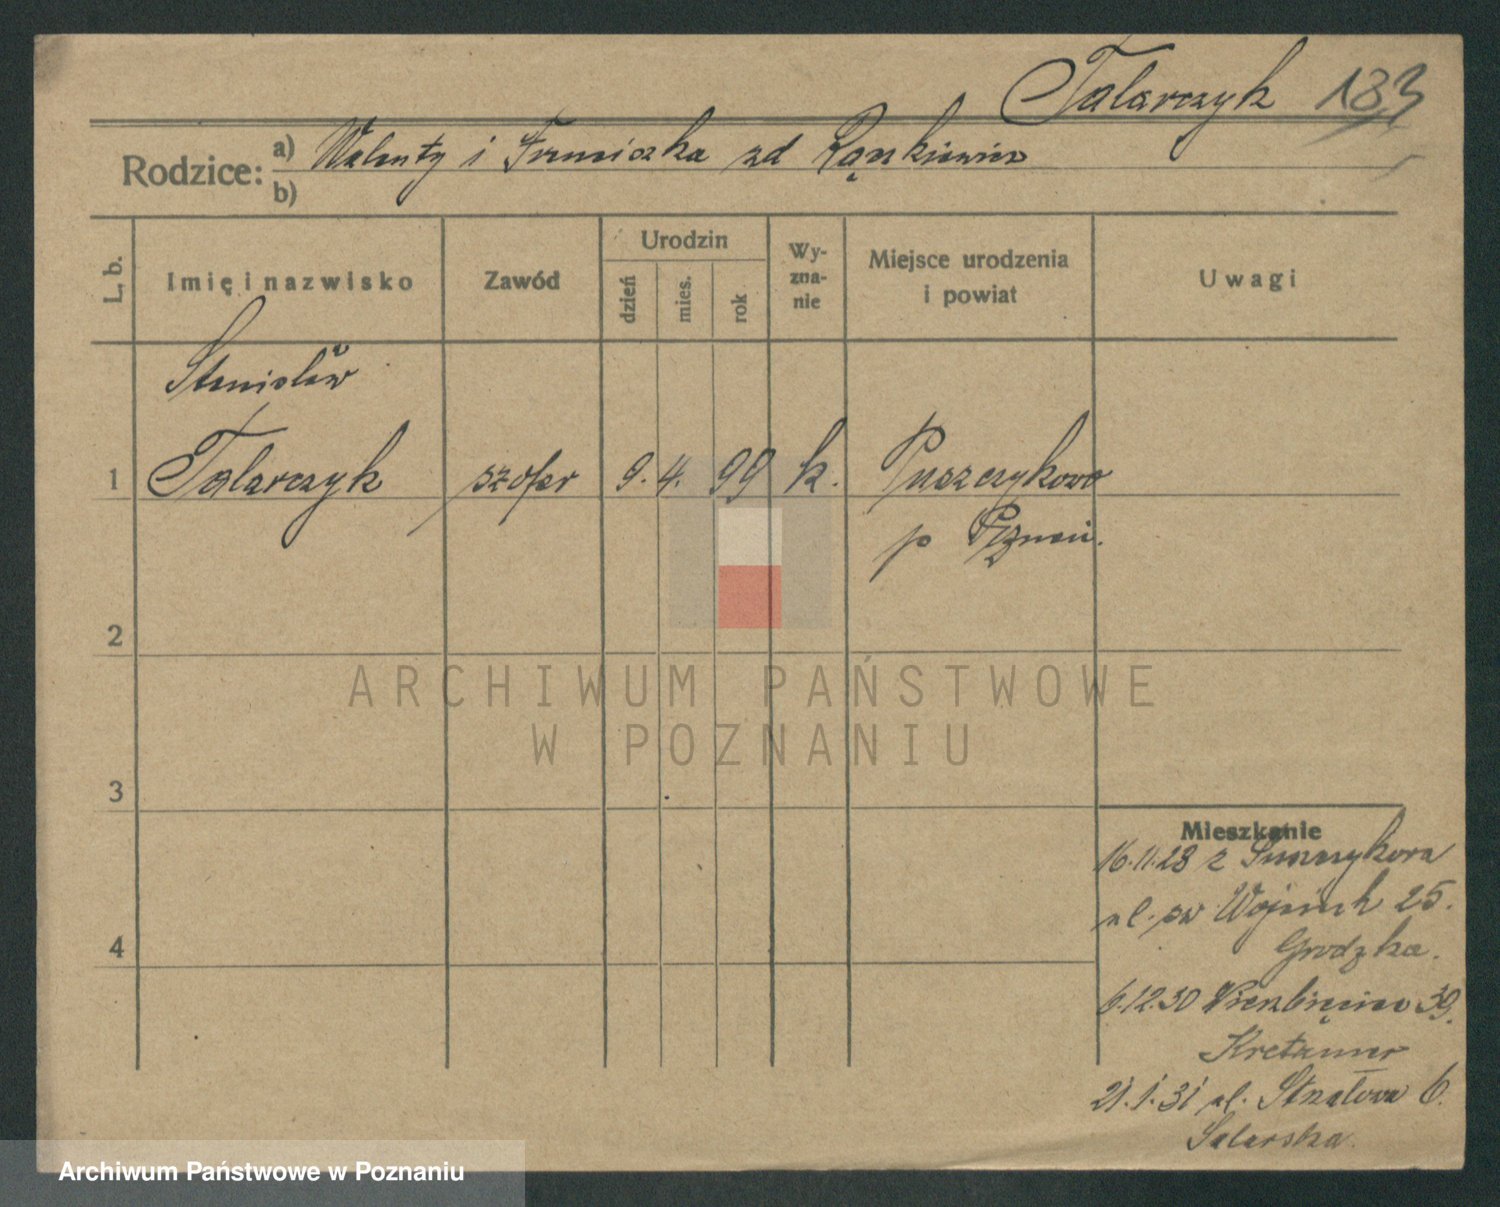 Talarczyk 183
Rodzice: a) Walenty i Franciszka zd
b)
L. b.
Imię i nazwisko
Zawód
Urodzin
dzień
mies.
rok
Wy-
zna-
nie
Miejsce urodzenia
i powiat
Uwagi
Stanisław
1 Talarczyk szofer 9. 4. 99 k. Puszczykowo
p Poznań.
2
3
4
Mieszkanie
16.11.28 z Puszczykowa
ul. św Wojciech 25.
Grodzka.
6.12.30 Wierzbięcice 39.
21.1.31 ul. Strzałowa 6.
ARCHIWUM PAŃSTWOWE
W POZNANIU
Archiwum Państwowe w Poznaniu